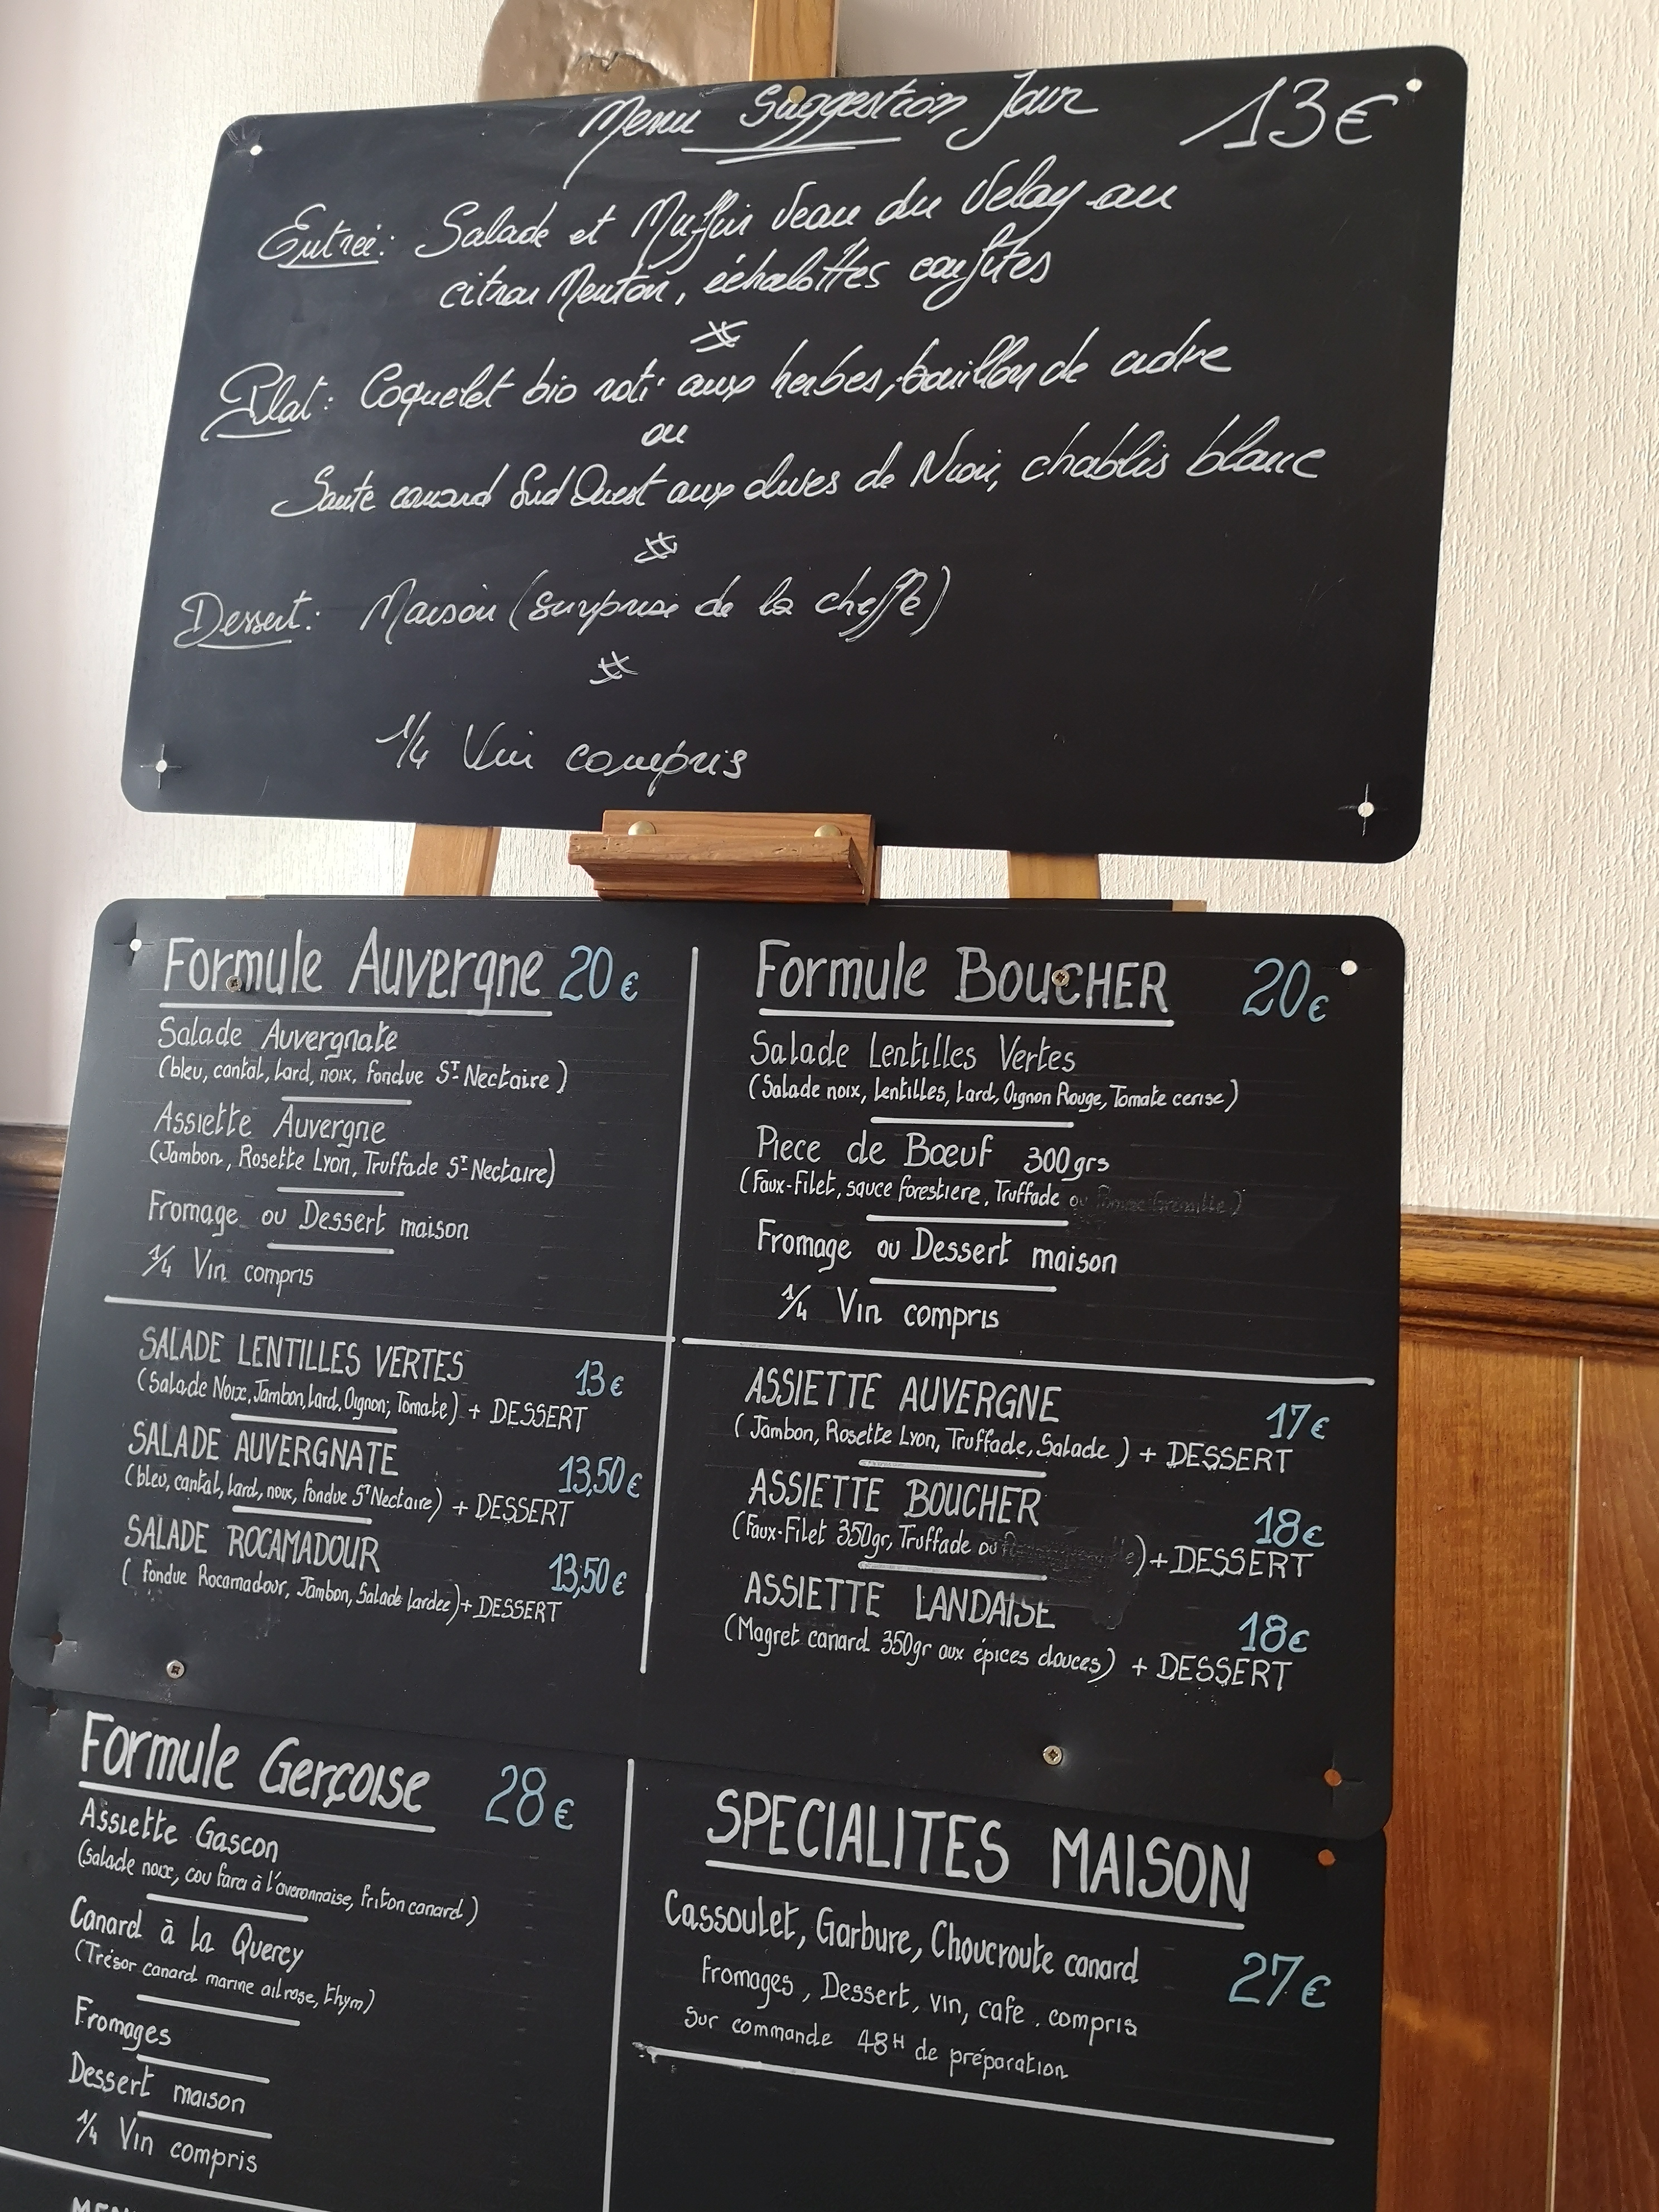 Menu Suggestion Jour 13€
Entreé: Salade et Muffin Veau du Velay au
citron Menton, échalottes confites
Plat: Coquelet bio roti aux herbes, bouillon de cidre
ou
Sauté canard Sud Ouest aux olives de Nion, chablis blanc
Dessert: Maison (surprise de la cheffe)
1/4 Vin compris
Formule Auvergne 20€
Salade Auvergnate
(bleu, cantal, lard, noix, fondue ST Nectaire)
Assiette Auvergne
(Jambon, Rosette Lyon, Truffade ST Nectaire)
Fromage ou Dessert maison
1/4 Vin compris
Formule BOUCHER 20€
Salade Lentilles Vertes
(Salade noix, Lentilles, Lard, Oignon Rouge, Tomate cerise)
Piece de Bœuf 300grs
(Faux-Filet, sauce forestiere, Truffade ou
Fromage ou Dessert maison
1/4 Vin compris
SALADE LENTILLES VERTES 13€
(Salade Noix, Jambon, lard, Oignon, Tomate) + DESSERT
SALADE AUVERGNATE 13,50€
(bleu, cantal, lard, noix, fondue ST Nectaire) + DESSERT
SALADE ROCAMADOUR 13,50€
(fondue Rocamadour, Jambon, Salade lardee) + DESSERT
ASSIETTE AUVERGNE 17€
(Jambon, Rosette Lyon, Truffade, Salade) + DESSERT
ASSIETTE BOUCHER 18€
(Faux-Filet 350gr, Truffade ou ) + DESSERT
ASSIETTE LANDAISE 18€
(Magret canard 350gr aux épices douces) + DESSERT
Formule Gerçoise 28€
Assiette Gascon
(salade noix, cou farci à l'averonnaise, friton canard)
Canard à la Quercy
(Trésor canard marine ail rose, thym)
Fromages
Dessert maison
1/4 Vin compris
SPECIALITES MAISON
Cassoulet, Garbure, Choucroute canard
Fromages, Dessert, vin, cafe. compris 27€
Sur commande 48H de préparation